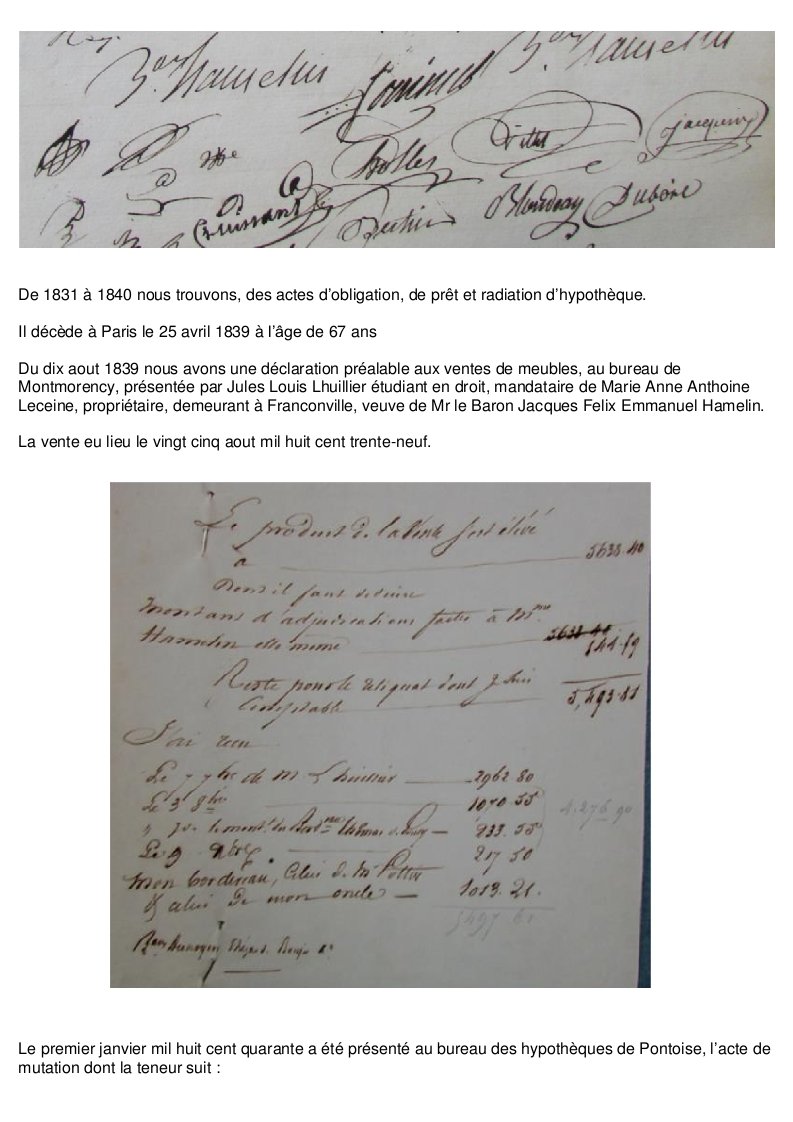 Bon Hamelin Bon Hamelin
Jacquin
Cholles
Bertin Blondeay Dubore
De 1831 à 1840 nous trouvons, des actes d’obligation, de prêt et radiation d’hypothèque.
Il décède à Paris le 25 avril 1839 à l’âge de 67 ans
Du dix aout 1839 nous avons une déclaration préalable aux ventes de meubles, au bureau de
Montmorency, présentée par Jules Louis Lhuillier étudiant en droit, mandataire de Marie Anne Anthoine
Leceine, propriétaire, demeurant à Franconville, veuve de Mr le Baron Jacques Felix Emmanuel Hamelin.
La vente eu lieu le vingt cinq aout mil huit cent trente-neuf.
Le produit de la vente s'est élévé
a 5638.40
Dont il faut deduire
montant d'adjudications faites à Mme
Hamelin elle même 144.59
Reste pour le reliquat dont je suis
Comptable 5,493.81
J'ai recu
Le 7 7bre de M Lhuillier 2962 80
Le 3 8bre 1070 55
233.55 4.276 90
Le 9 9bre 217 50
Mon bordereau, Celui de Mr Pottier
& celui De mon oncle 1013.21.
5497 61
Le premier janvier mil huit cent quarante a été présenté au bureau des hypothèques de Pontoise, l’acte de
mutation dont la teneur suit :